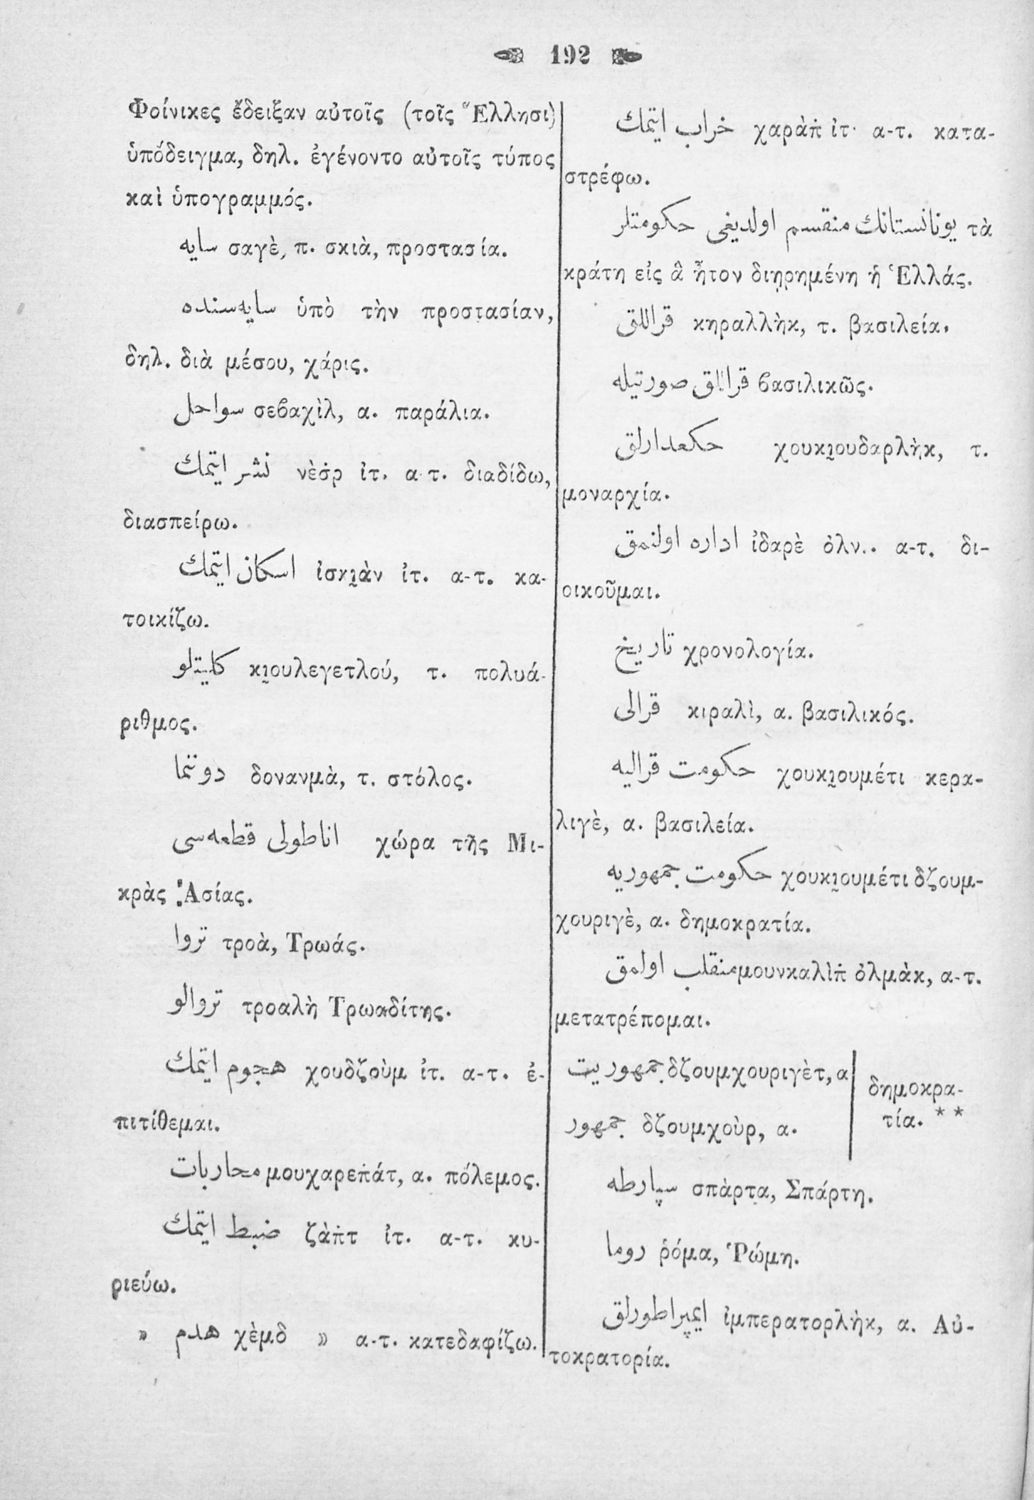 192
Φοίνικες ἔδειξαν αὐτοῖς (τοῖς Ἕλλησι)
ὑπόδειγμα, δηλ. ἐγένοντο αὐτοῖς τύπος
καὶ ὑπογραμμός.
سایه σαγὲ, π. σκιὰ, προστασία.
سایه‌سنده ὑπὸ τὴν προστασίαν,
δηλ. διὰ μέσου, χάρις.
سواحل σεβαχὶλ, α. παράλια.
نشر ایتمك νὲσ̇ρ ἰτ. α-τ. διαδίδω,
διασπείρω.
اسكان ایتمك ἰσκι̮ὰν ἰτ. α-τ. κα-
τοικίζω.
كلیتلو κι̮ουλεγετλού, τ. πολυά-
ριθμος.
دوننما δονανμὰ, τ. στόλος.
اناطولی قطعه‌سی χώρα τῆς Μι-
κρὰς Ἀσίας.
تروا τροὰ, Τρωάς.
تروالو τροαλὴ Τρωαδίτης.
هجوم ایتمك χουδζοὺμ ἰτ. α-τ. ἐ-
πιτίθεμαι.
محاربات μουχαρεπ̇άτ, α. πόλεμος.
ضبط ایتمك ζὰπ̇τ ἰτ. α-τ. κυ-
ριεύω.
» هدم χὲμδ » α-τ. κατεδαφίζω.
خراب ایتمك χαρὰπ̇ ἰτ. α-τ. κατα-
στρέφω.
یونانستانك منقسم اولدیغی حكومتلر τὰ
κράτη εἰς ἃ ἦτον διῃρημένη ἡ Ἑλλάς.
قراللق κηραλλὴκ, τ. βασιλεία.
قراللق صورتیله βασιλικῶς.
حكمدارلق χουκι̮ουδαρλὴκ, τ.
μοναρχία.
اداره اولنمق ἰδαρὲ ὀλν.. α-τ. δι-
οικοῦμαι.
تاریخ χρονολογία.
قرالی κιραλὶ, α. βασιλικός.
حكومت قرالیه χουκι̮ουμέτι κερα-
λιγὲ, α. βασιλεία.
حكومت جمهوریه χουκι̮ουμέτι δζουμ-
χουριγὲ, α. δημοκρατία.
منقلب اولمق μουνκαλὶπ̇ ὀλμὰκ, α-τ.
μετατρέπομαι.
جمهوریت δζουμχουριγὲτ, α
جمهور δζουμχοὺρ, α.
δημοκρα-
τία. **
سپارطه σπὰρτα, Σπάρτη.
روما ῥόμα, Ῥώμη.
ایمپراطورلق ἰμπερατορλὴκ, α. Αὐ-
τοκρατορία.